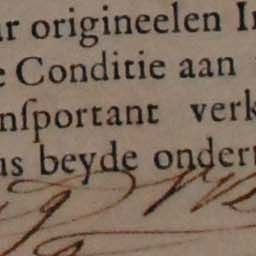 ar origineelen In
e Conditie aan
nſportant verk
us beyde ondern